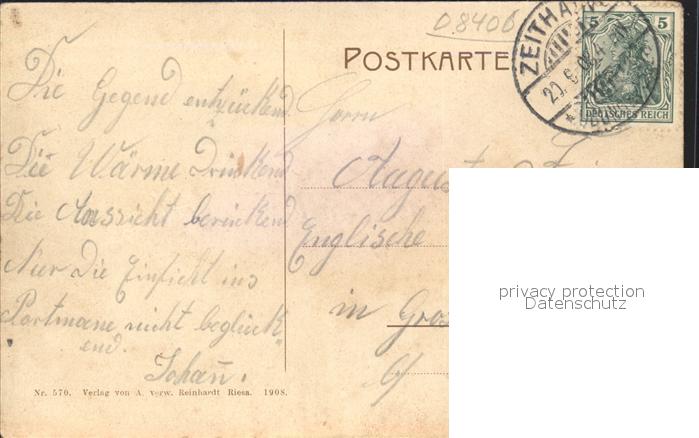 D.840b
POSTKARTE
ZEITHAIN
5 5
DEUTSCHES REICH
Die Gegend entzückend
Die Wärme Drückend
Die Aussicht berückend
Nur die Einsicht ins
Portmane nicht beglück
end.
Johann.
Herrn
August
Englische
in Gros
Nr. 570. Verlag von A. verw. Reinhardt Riesa. 1908.
privacy protection
Datenschutz